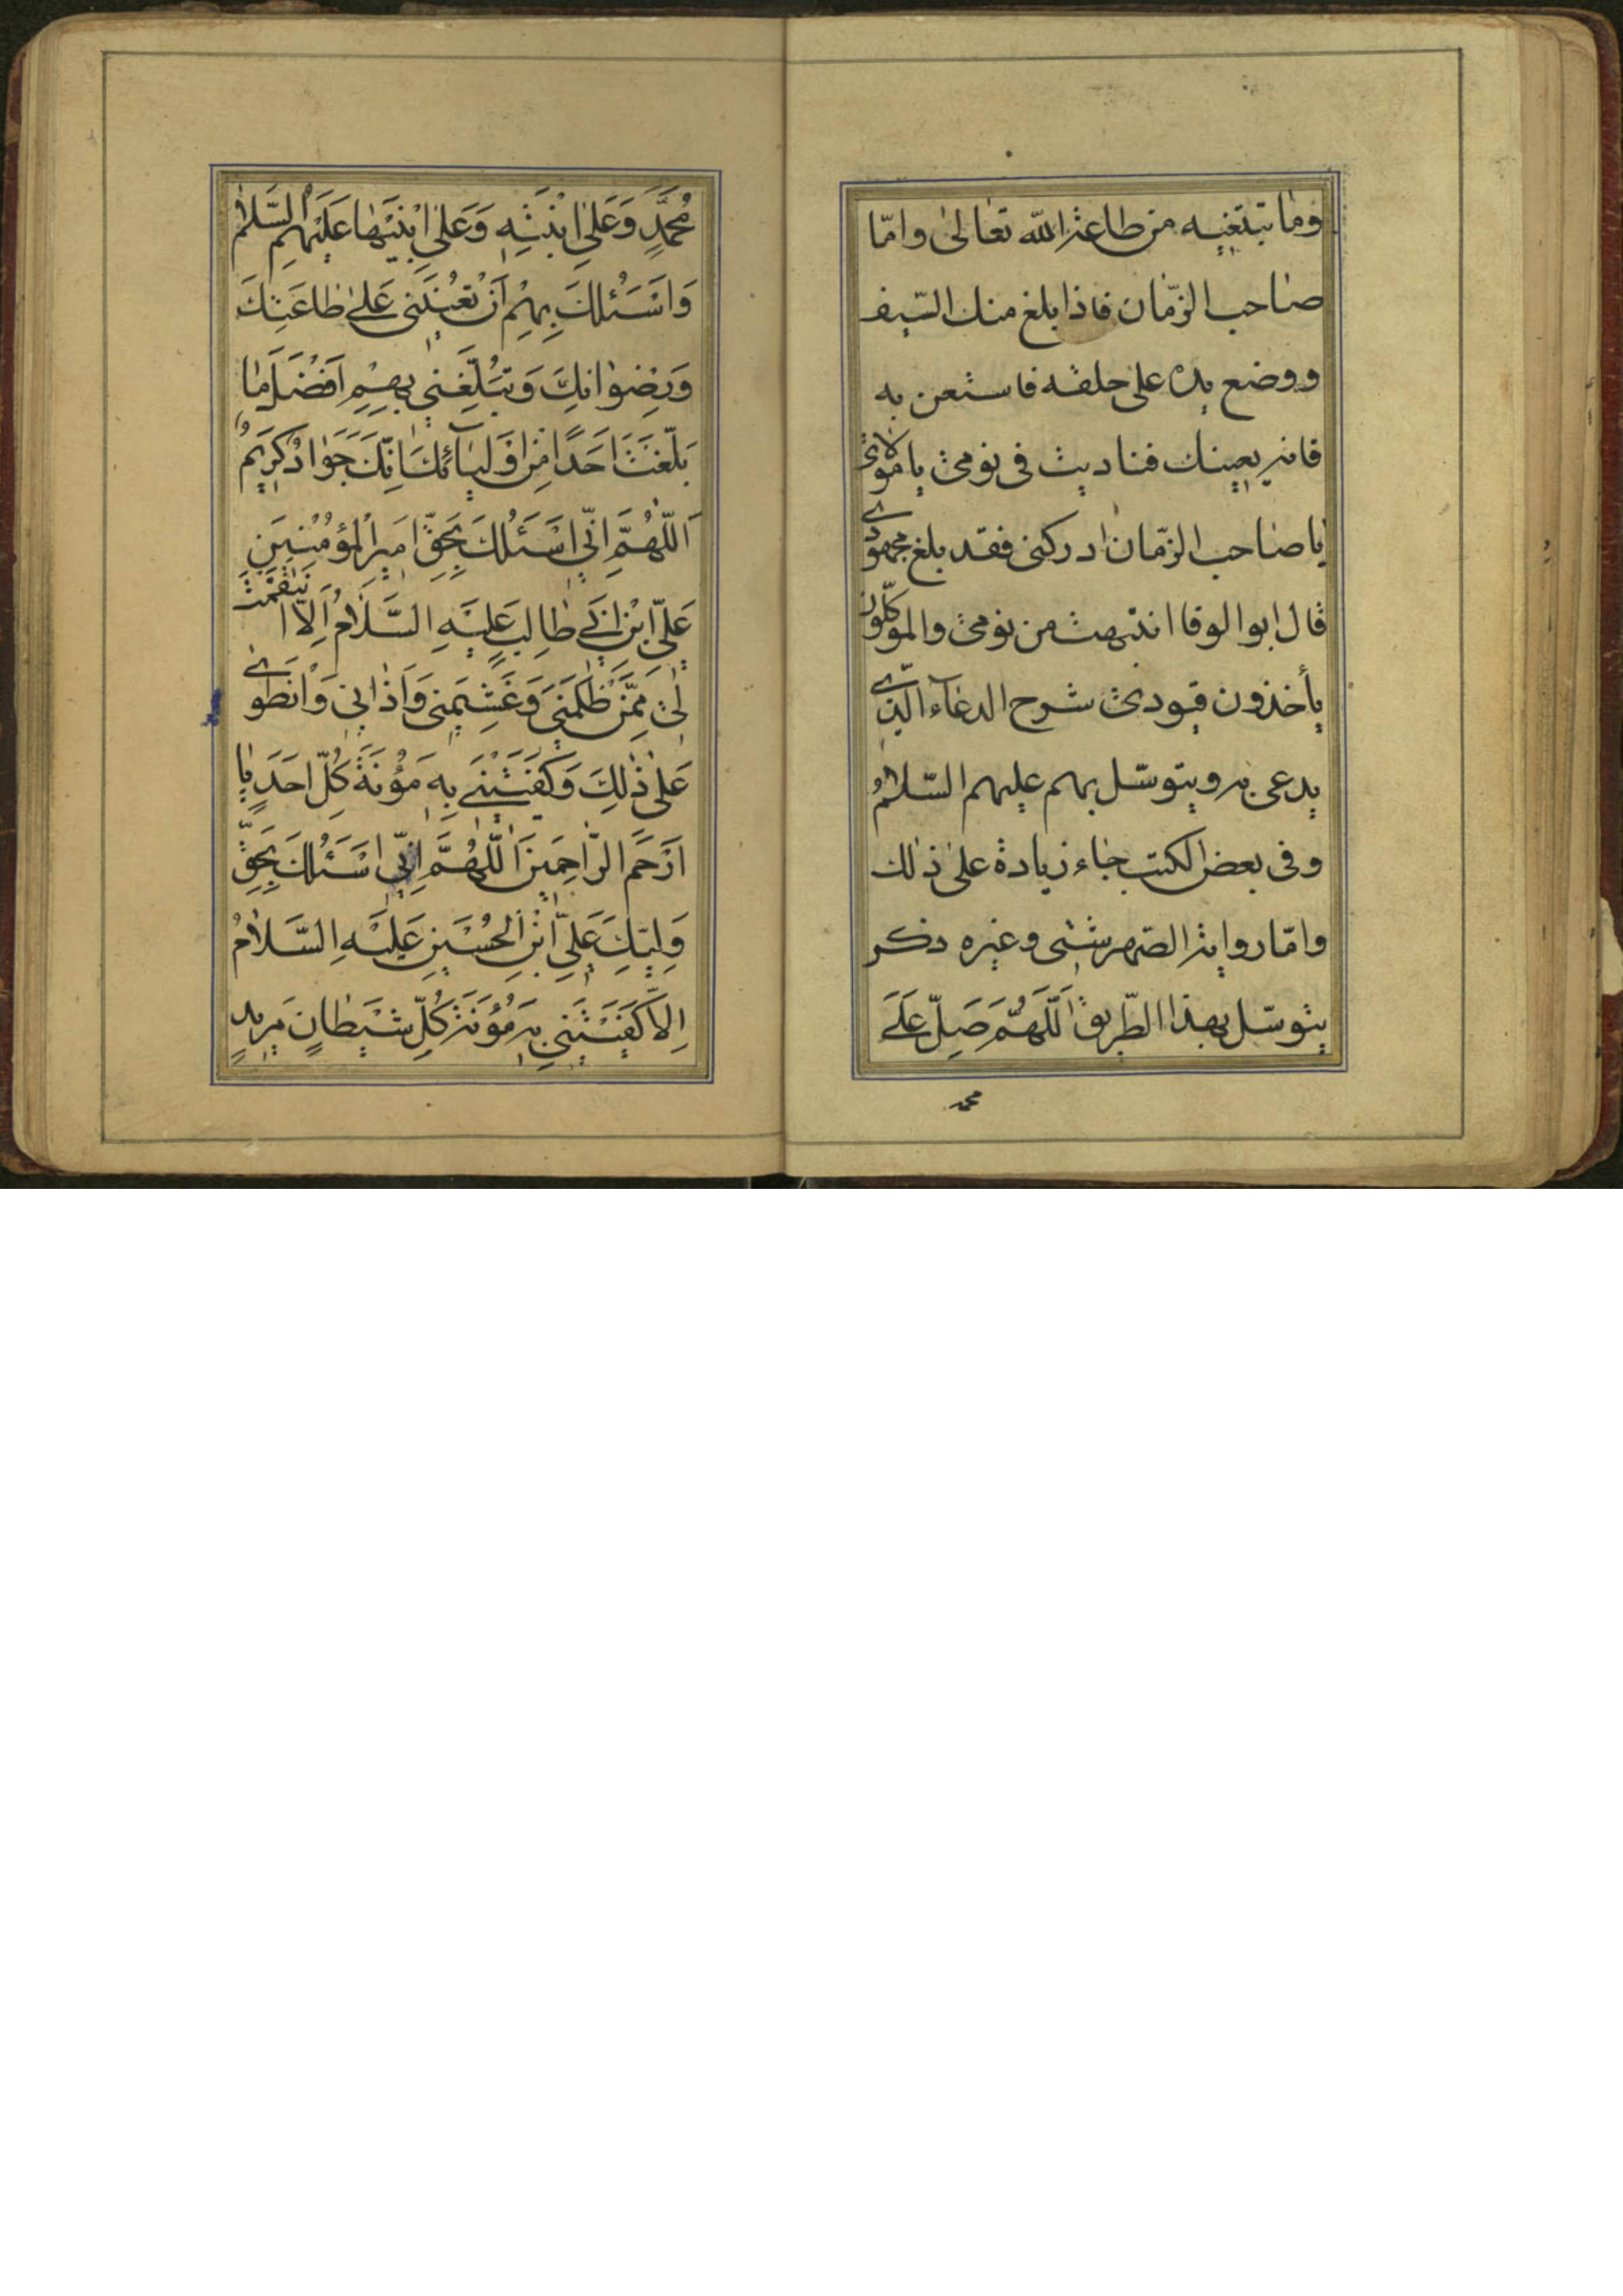 وما تبتغيه من طاعة الله تعالى وامّا
صاحب الزّمان فاذا بلغ منك السّيف
ووضع يده على حلقه فاستعن به
فانه يعينك فناديت في نومي يا مولاي
يا صاحب الزّمان ادركني فقد بلغ مجهودي
قال ابو الوفا انتبهت من نومي والموكّلون
يأخذون قيودي شرح الدعآء الّذي
يدعى به ويتوسّل بهم عليهم السّلام
وفي بعض الكتب جاء زيادة على ذلك
وامّا رواية الصّهرشتي وغيره ذكر
يتوسّل بهذا الطّريق اَللّهُمَّ صَلِّ عَلى
محمد
مُحَمَّدٍ وَعَلَى ابْنَتِهِ وَعَلَى ابْنَيْهَا عَلَيْهِمُ السَّلامُ
وَاَسْئَلُكَ بِهِمْ اَنْ تُعينَني عَلى طاعَتِكَ
وَرِضْوانِكَ وَتُبَلِّغَني بِهِمْ اَفْضَلَ ما
بَلَّغْتَ اَحَدًا مِنْ اَوْلِيآئِكَ اِنَّكَ جَوادٌ كَريمٌ
اَللّهُمَّ اِنّي اَسْئَلُكَ بِحَقِّ اَميرِ الْمُؤْمِنينَ
عَلِيِّ ابْنِ اَبي طالِبٍ عَلَيْهِ السَّلامُ اِلاَّ انْتَقَمْتَ
لي مِمَّنْ ظَلَمَني وَغَشَمَني وَاَذاني وَانْطَوى
عَلى ذلِكَ وَكَفَيْتَني بِهِ مَؤُنَةَ كُلِّ اَحَدٍ يا
اَرْحَمَ الرّاحِمينَ اَللّهُمَّ اِنّي اَسْئَلُكَ بِحَقِّ
وَلِيِّكَ عَلِيِّ ابْنِ الْحُسَيْنِ عَلَيْهِ السَّلامُ
اِلاَّ كَفَيْتَني بِهِ مَؤُنَةَ كُلِّ شَيْطانٍ مَريدٍ